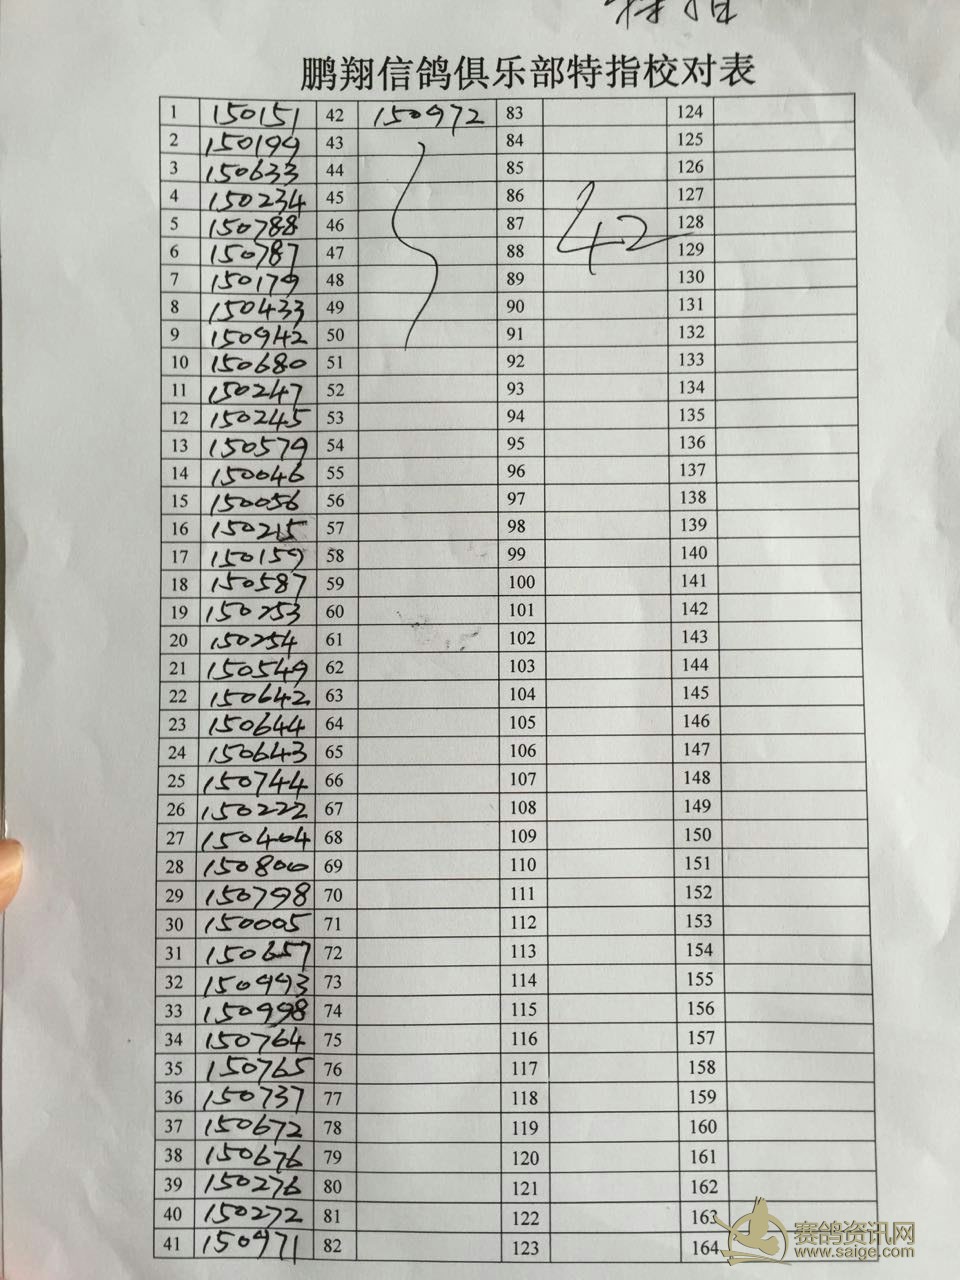 特指
鹏翔信鸽俱乐部特指校对表
1 150151 42 150972 83 124
2 150199 43 84 125
3 150633 44 85 126
4 150234 45 86 127
5 150788 46 87 42 128
6 150787 47 88 129
7 150179 48 89 130
8 150433 49 90 131
9 150942 50 91 132
10 150680 51 92 133
11 150247 52 93 134
12 150245 53 94 135
13 150579 54 95 136
14 150046 55 96 137
15 150056 56 97 138
16 150215 57 98 139
17 150159 58 99 140
18 150587 59 100 141
19 150253 60 101 142
20 150254 61 102 143
21 150549 62 103 144
22 150642 63 104 145
23 150644 64 105 146
24 150643 65 106 147
25 150744 66 107 148
26 150222 67 108 149
27 150404 68 109 150
28 150800 69 110 151
29 150798 70 111 152
30 150005 71 112 153
31 150657 72 113 154
32 150993 73 114 155
33 150998 74 115 156
34 150764 75 116 157
35 150765 76 117 158
36 150737 77 118 159
37 150672 78 119 160
38 150676 79 120 161
39 150276 80 121 162
40 150272 81 122 163
41 150971 82 123 164
赛鸽资讯网
www.saige.com